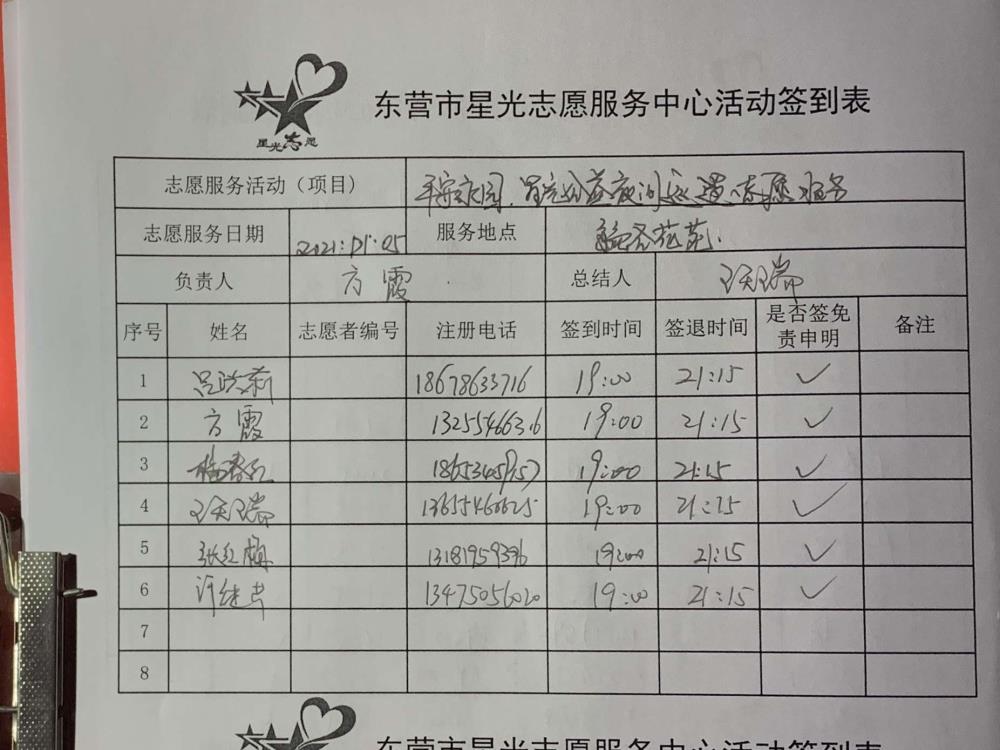 东营市星光志愿服务中心活动签到表
星光志愿
志愿服务活动（项目） 平安家园.
志愿服务日期 2021:01:05 服务地点 花苑.
负责人 方霞 总结人 王瑞
序号 姓名 志愿者编号 注册电话 签到时间 签退时间 是否签免责申明 备注
1 18678633716 19:00 21:15 ✓
2 方霞 13255466316 19:00 21:15 ✓
3 19:00 21:15 ✓
4 13655460625 19:00 21:15 ✓
5 张红梅 13181959396 19:00 21:15 ✓
6 许继 13475056020 19:00 21:15 ✓
7
8
东营市星光志愿服务中心活动签到表